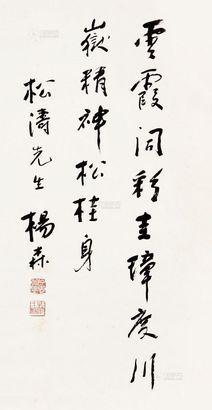 雲霞同彩圭璋度川
嶽精神松桂身
松濤先生 楊森